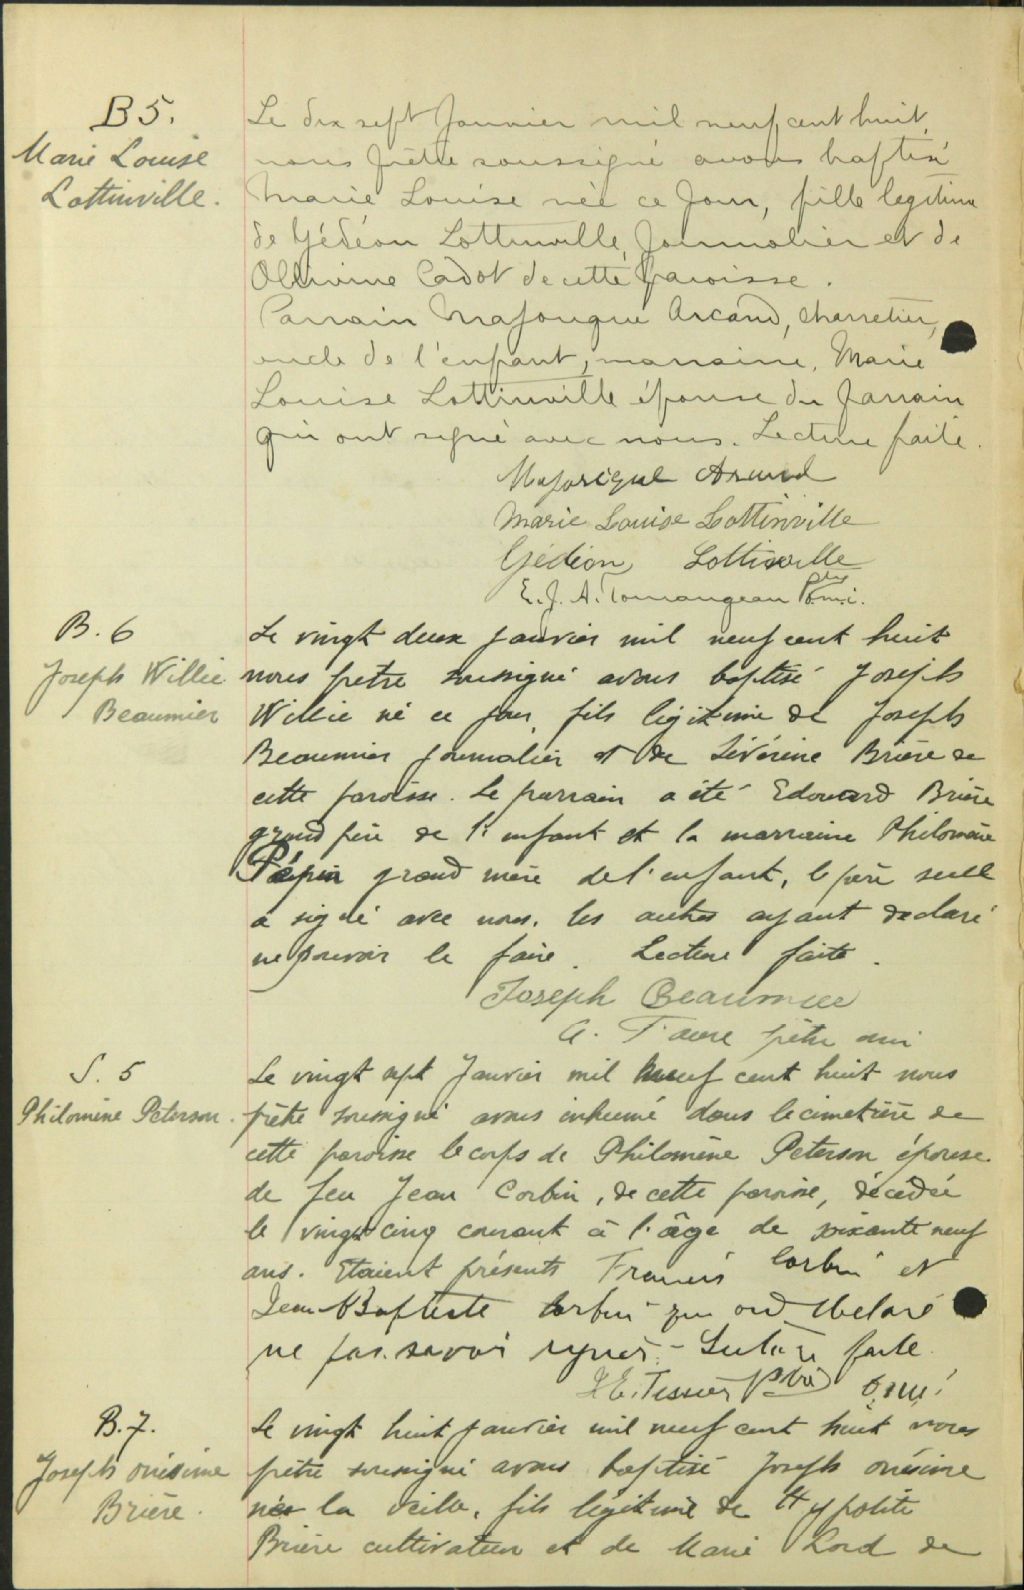 B 5.
Marie Louise
Lottinville.
Le dix sept Janvier mil neuf cent huit,
nous prêtre soussigné avons baptisé
Marie Louise née ce jour, fille legitime
de Gédéon Lottinville, Journalier et de
Olivine Cadot de cette paroisse.
Parrain Majorique Arcand, charretier,
oncle de l'enfant, marraine, Marie
Louise Lottinville épouse du parrain
qui ont signé avec nous. Lecture faite.
Majorique Arcand
Marie Louise Lottinville
Gédéon Lottinville
E. J. A. Tourangeau Ptre o.m.i.
B. 6
Joseph Willie
Beaumier
Le vingt deux janvier mil neuf cent huit
nous prêtre soussigné avons baptisé Joseph
Willie né ce jour, fils légitime de Joseph
Beaumier journalier et de Sévérine Brière de
cette paroisse. Le parrain a été Edouard Brière
grand père de l'enfant et la marraine Philomène
Pépin grand mère de l'enfant, le père seul
a signé avec nous, les autres ayant déclaré
ne pouvoir le faire. Lecture faite.
Joseph Beaumier
A. Faure prêtre omi
S. 5
Philomène Peterson.
Le vingt sept Janvier mil neuf cent huit nous
prêtre soussigné avons inhumé dans le cimetière de
cette paroisse le corps de Philomène Peterson épouse
de feu Jean Corbin, de cette paroisse, décédée
le vingt cinq courant à l'âge de soixante neuf
ans. Etaient présents Francis Corbin et
Jean Baptiste Corbin qui ont declaré
ne pas savoir signer. - Lecture faite.
J. E. Tessier Ptre o.m.i.
B. 7.
Joseph onésime
Brière.
Le vingt huit janvier mil neuf cent huit nous
prêtre soussigné avons baptisé Joseph onésime
né la veille, fils légitime de Hypolite
Brière cultivateur et de Marie Lord de